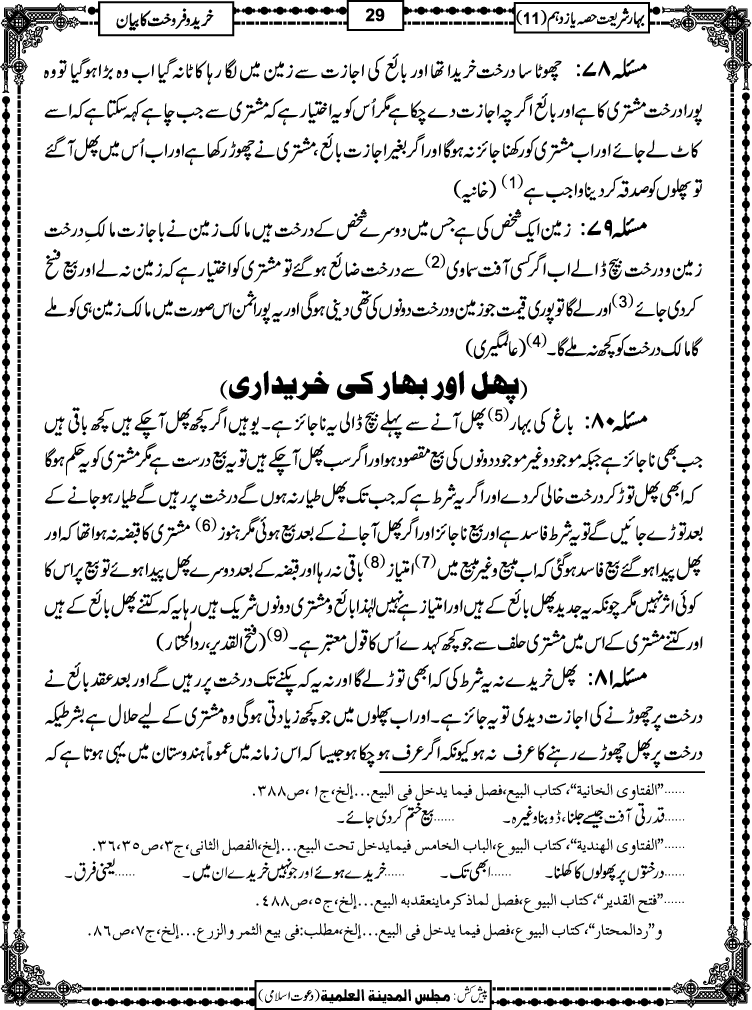 بہار شریعت حصہ یازدہم (11)
29
خرید و فروخت کا بیان
مسئلہ ۷۸: چھوٹا سا درخت خریدا تھا اور بائع کی اجازت سے زمین میں لگا رہا کاٹا نہ گیا اب وہ بڑا ہوگیا تو وہ
پورا درخت مشتری کا ہے اور بائع اگرچہ اجازت دے چکا ہے مگر اُس کو یہ اختیار ہے کہ مشتری سے جب چاہے کہہ سکتا ہے کہ اسے
کاٹ لے جائے اور اب مشتری کو رکھنا جائز نہ ہوگا اور اگر بغیر اجازت بائع، مشتری نے چھوڑ رکھا ہے اور اب اُس میں پھل آگئے
تو پھلوں کو صدقہ کردینا واجب ہے (1) (خانیہ)
مسئلہ ۷۹: زمین ایک شخص کی ہے جس میں دوسرے شخص کے درخت ہیں مالک زمین نے باجازت مالکِ درخت
زمین و درخت بیچ ڈالے اب اگر کسی آفت سماوی (2) سے درخت ضائع ہوگئے تو مشتری کو اختیار ہے کہ زمین نہ لے اور بیع فسخ
کردی جائے (3) اور لے گا تو پوری قیمت جو زمین و درخت دونوں کی تھی دینی ہوگی اور یہ پورا ثمن اس صورت میں مالک زمین ہی کو ملے
گا مالک درخت کو کچھ نہ ملے گا۔ (4) (عالمگیری)
(پھل اور بھار کی خریداری)
مسئلہ ۸۰: باغ کی بہار (5) پھل آنے سے پہلے بیچ ڈالی یہ ناجائز ہے۔ یوہیں اگر کچھ پھل آچکے ہیں کچھ باقی ہیں
جب بھی ناجائز ہے جبکہ موجود و غیر موجود دونوں کی بیع مقصود ہو اور اگر سب پھل آچکے ہیں تو یہ بیع درست ہے مگر مشتری کو یہ حکم ہوگا
کہ ابھی پھل توڑ کر درخت خالی کردے اور اگر یہ شرط ہے کہ جب تک پھل طیار نہ ہوں گے درخت پر رہیں گے طیار ہوجانے کے
بعد توڑے جائیں گے تو یہ شرط فاسد ہے اور بیع ناجائز اور اگر پھل آجانے کے بعد بیع ہوئی مگر ہنوز (6) مشتری کا قبضہ نہ ہوا تھا کہ اور
پھل پیدا ہوگئے بیع فاسد ہوگئی کہ اب مبیع و غیر مبیع میں (7) امتیاز (8) باقی نہ رہا اور قبضہ کے بعد دوسرے پھل پیدا ہوئے تو بیع پر اس کا
کوئی اثر نہیں مگر چونکہ یہ جدید پھل بائع کے ہیں اور امتیاز ہے نہیں لہٰذا بائع و مشتری دونوں شریک ہیں رہا یہ کہ کتنے پھل بائع کے ہیں
اور کتنے مشتری کے اس میں مشتری حلف سے جو کچھ کہدے اُس کا قول معتبر ہے۔ (9) (فتح القدیر، ردالمحتار)
مسئلہ ۸۱: پھل خریدے نہ یہ شرط کی کہ ابھی توڑ لے گا اور نہ یہ کہ پکنے تک درخت پر رہیں گے اور بعد عقد بائع نے
درخت پر چھوڑنے کی اجازت دیدی تو یہ جائز ہے۔ اور اب پھلوں میں جو کچھ زیادتی ہوگی وہ مشتری کے لیے حلال ہے بشرطیکہ
درخت پر پھل چھوڑے رہنے کا عرف نہ ہو کیونکہ اگر عرف ہو چکا ہو جیسا کہ اس زمانہ میں عموماً ہندوستان میں یہی ہوتا ہے کہ
......"الفتاوی الخانیة"، کتاب البیع، فصل فیما یدخل فی البیع...إلخ، ج۱، ص۳۸۸.
......قدرتی آفت جیسے جلنا، ڈوبنا وغیرہ۔ ......بیع ختم کردی جائے۔
......"الفتاوی الهندیة"، کتاب البیوع، الباب الخامس فیما یدخل تحت البیع...إلخ، الفصل الثانی، ج۳، ص۳۵،۳۶.
......درختوں پر پھولوں کا کھلنا۔ ......ابھی تک۔ ......خریدے ہوئے اور جو نہیں خریدے ان میں۔ ......یعنی فرق۔
......"فتح القدیر"، کتاب البیوع، فصل لما ذکر ما ینعقد به البیع...إلخ، ج۵، ص۴۸۸.
و"ردالمحتار"، کتاب البیوع، فصل فیما یدخل فی البیع...إلخ، مطلب: فی بیع الثمر والزرع...إلخ، ج۷، ص۸۶.
پیش کش: مجلس المدینة العلمیة (دعوت اسلامی)